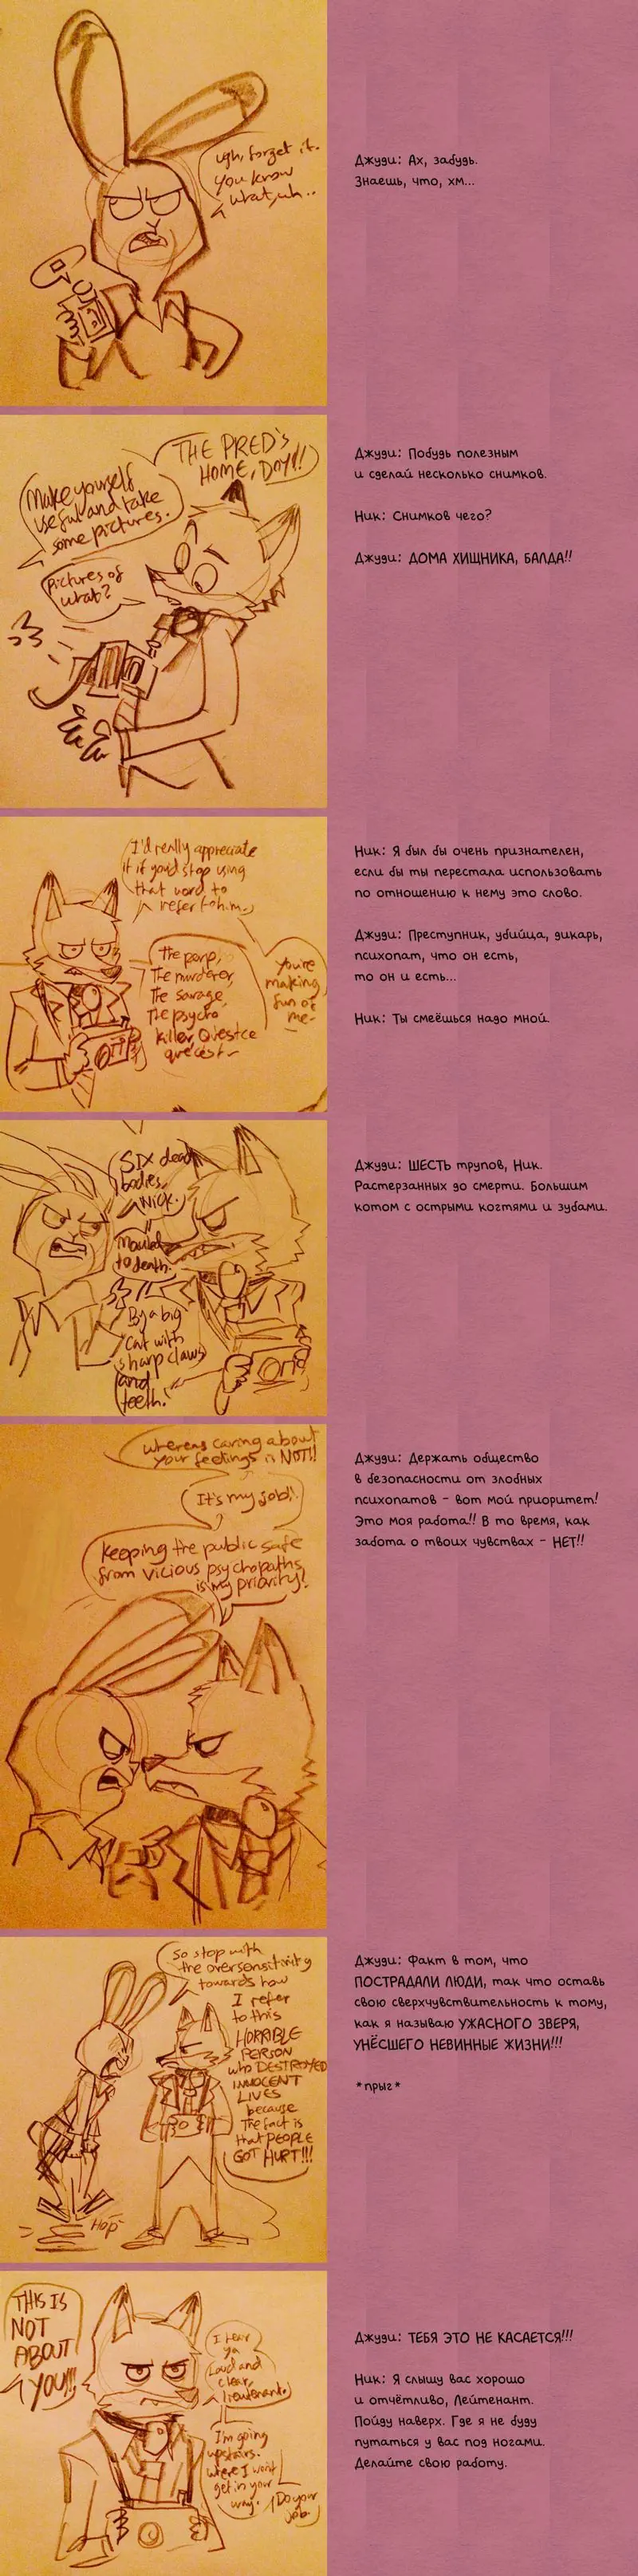 ugh, forget it.
you know
what, uh..
Джуди: Ах, забудь.
Знаешь, что, хм...
THE PRED'S
HOME, DOY!!
Make yourself
useful and take
some pictures.
pictures of
what?
Джуди: Побудь полезным
и сделай несколько снимков.
Ник: Снимков чего?
Джуди: ДОМА ХИЩНИКА, БАЛДА!!
I'd really appreciate
it if you'd stop using
that word to
refer to him.
The perp,
The murderer,
The savage,
The psycho
killer, Qu'estce
que c'est-
You're
making
fun of
me-
Ник: Я был бы очень признателен,
если бы ты перестала использовать
по отношению к нему это слово.
Джуди: Преступник, убийца, дикарь,
психопат, что он есть,
то он и есть...
Ник: Ты смеёшься надо мной.
SIX dead
bodies,
Nick.
Mauled
to death.
By a big
cat with
sharp claws
and
teeth.
Джуди: ШЕСТЬ трупов, Ник.
Растерзанных до смерти. Большим
котом с острыми когтями и зубами.
whereas caring about
your feelings is NOT!!
It's my job!
Keeping the public safe
from vicious psychopaths
is my priority!
Джуди: Держать общество
в безопасности от злобных
психопатов - вот мой приоритет!
Это моя работа!! В то время, как
забота о твоих чувствах - НЕТ!!
So stop with
the oversensitivity
towards how
I refer
to this
HORRIBLE
PERSON
who DESTROYED
INNOCENT
LIVES
because
The fact is
that PEOPLE
GOT HURT!!!
Hop
Джуди: Факт в том, что
ПОСТРАДАЛИ ЛЮДИ, так что оставь
свою сверхчувствительность к тому,
как я называю УЖАСНОГО ЗВЕРЯ,
УНЁСШЕГО НЕВИННЫЕ ЖИЗНИ!!!
*прыг*
THIS IS
NOT
ABOUT
YOU!!!
I hear
ya
Loud and
clear,
lieutenant.
I'm going
upstairs.
where I won't
get in your
way.
Do your
job.
Джуди: ТЕБЯ ЭТО НЕ КАСАЕТСЯ!!!
Ник: Я слышу вас хорошо
и отчётливо, Лейтенант.
Пойду наверх. Где я не буду
путаться у вас под ногами.
Делайте свою работу.